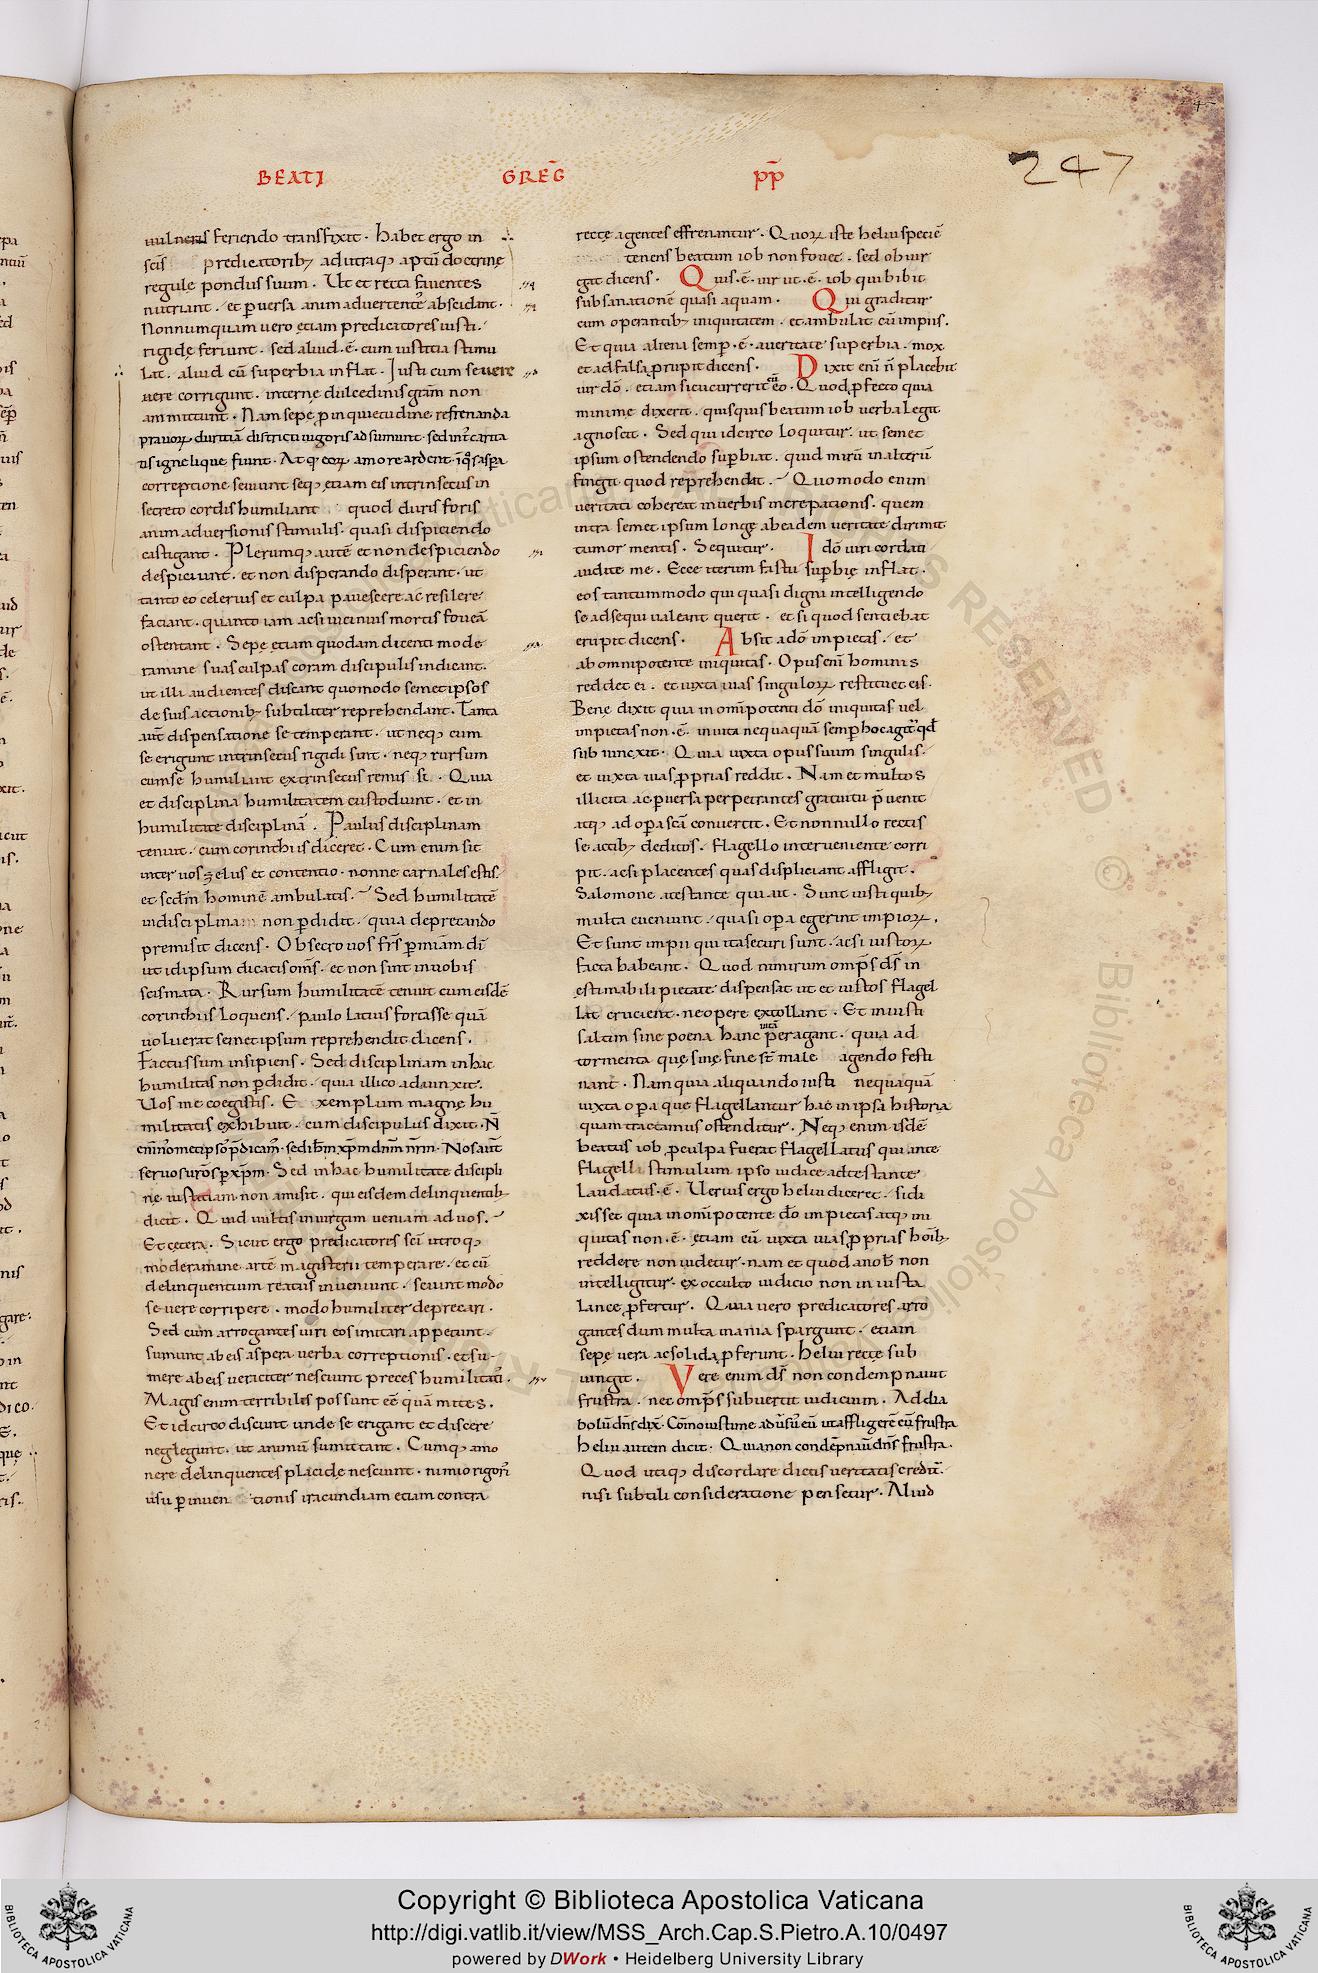 247
BEATI GREG̅ P̅P̅
uulneris feriendo transfixit. Habet ergo in
scis predicatorib; ad utraq; aptū doctrinę
regule pondus suum. Ut et recta fauentes
nutriant. et p̱uersa animaduertentes abscidant.
Nonnumquam uero ętiam predicatores iusti.
rigidę feriunt. sed aliud .ē. cum iustitia stimu
lat. aliud cū superbia inflat. Iusti cum seuere
uere corrigunt. internę dulcedinis gr̄am non
ammittunt. Nam sepę p̱ inquietudine refrenanda
correptione seuiunt seq; ętiam eis intrinsecus in
secreto cordis humiliant quod duris foris
animaduersionis stimulis. quasi dispiciendo
castigant. Plerumq; autē et non despiciendo
despiciunt. et non disperando disperant. ut
tanto eo celerius et culpa pauescere ac resilere
faciant. quanto iam ac si uicinius mortis foueā
ostentant. Sepę ętiam quodam dicenti mode
ramine suas culpas coram discipulis indicant.
ut illi audientes discant quomodo semet ipsos
de suis actionib; subtiliter reprehendant. Tanta
aut̄ dispensatione se temperant. ut neq; cum
se erigunt intrinsecus rigidi sint. neq; rursum
cum se humiliant extrinsecus remissi. Quia
et disciplina humilitatem custodiunt. et in
humilitate disciplinā. Paulus disciplinam
tenuit. cum corinthiis diceret. Cum enim sit
inter uos zelus et contentio. nonne carnales estis.
et scd̄m hominē ambulatis. Sed humilitatē
in disciplina non p̱didit. quia deprecando
premisit dicens. Obsecro uos fr̄s p̱ mīam dī
ut id ipsum dicatis om̄s. et non sint in uobis
scismata. Rursum humilitatē tenuit cum eisdē
corinthiis loquens. paulo latius fortasse quā
uoluerat semet ipsum reprehendit dicens.
Factus sum insipiens. Sed disciplinam in hac
humilitas non p̱didit. quia illico adiunxit.
Uos me coegistis. E xemplum magnę hu
militatis exhibuit. cum discipulus dixit. N̄
seruos uros p̱ xp̄m. Sed in hac humilitate discipli
ne iustitiam non amisit. qui eisdem delinquentib;
dicit. Quid uultis in uirgam ueniam ad uos.
Et cętera. Sicut ergo predicatores scī utroq;
moderamine artē magisterii temperare. et cū
delinquentium reatus inueniunt. sciunt modo
seuere corripere. modo humiliter deprecari.
Sed cum arrogantes uiri eos imitari appetunt.
sumunt ab eis aspera uerba correptionis. et su-
mere ab eis ueraciter nesciunt preces humilitatis.
Magis enim terribiles possunt eē quā mites.
Et idcirco discunt unde se erigant et discere
neglegunt. ut animū sumittant. Cumq; amo
nere delinquentes placidę nesciunt. nimio rigoris
usu p̱ inuen tionis iracundiam etiam contra
recte agentes effrenantur. Quorum iste heliu speciē
tenens beatum iob non fouet. sed obiur
git dicens. Quis .ē. uir ut .ē. iob qui bibit
subsanationē quasi aquam. Qui graditur
cum operantib; iniquitatem. et ambulat cū impiis.
Et quia aliena semp̱ .ē. a ueritate superbia. mox
et ad falsa p̱rupit dicens. Dixit enī n̄ placebit
uir dō. etiam si cucurrerit cū eo. Quod p̱fecto quia
minime dixerit. quisquis beatum iob uerba legit
agnoscit. Sed qui idcirco loquitur. ut semet
ipsum ostendendo sup̱biat. quid mirū in alterū
fingit quod reprehendat. Quomodo enim
ueritati cohereat in uerbis increpationis. quem
intra semet ipsum longę ab eadem ueritate dirimit
tumor mentis. Sequitur. Idō uiri cordati
audite me. Ecce iterum fastu sup̱bię inflat.
eos tantummodo qui quasi digni intelligendo
se adsequi ualeant querit. et si quod sentiebat
erupit dicens. Absit a dō impietas. et
ab omnipotente iniquitas. Opus enī hominis
reddet ei. et iuxta uias singulorum restituet eis.
Benę dixit quia in om̄ipotenti dō iniquitas uel
impietas non .ē.
sub iunexit. Quia iuxta opus suum singulis.
et iuxta uias p̱prias reddit. Nam et multos
illicita ac p̱uersa perpetrantes gratuitu p̄uenit
atq; ad op̱a scā conuertit. Et nonnullo rectis
se actib; deditos. flagello interueniente corri
pit. ac si placentes quasi displiceant affligit.
Salomone atestante qui ait. Sunt iusti quib;
multa eueniunt. quasi op̱a egerint impiorum.
Et sunt impii qui ita securi sunt. ac si iustorum
facta habeant. Quod nimirum omp̄s d̄s in
ęstimabili pietate dispensat ut et iustos flagel
la excrucient. ne opere extollant. Et iniusti
saltim sine poena hanc uitā peragant. quia ad
tormenta quę sinę fine st̄ male agendo festi
nant. Nam quia aliquando iusti nequaquā
iuxta op̱a que flagellantur hac in ipsa historia
quam tractamus ostenditur. Neq; enim isdē
beatus iob p̱ culpa fuerat flagellatus qui ante
flagelli stimulum ipso iudice adtestante
laudatus .ē. Uerius ergo heliu diceret. si di
xisset quia in om̄ipotente dō impietas atq; ini
quitas non .ē. ętiam eū iuxta uias p̱prias hōib;
reddere non uidetur. nam et quod a nob̄ non
intelligitur. ex occulto iudicio non iniusta
lance p̱fertur. Quia uero predicatores arro
gantes dum multa inania spargunt. etiam
sepę uera ac solida p̱ferunt. Heliu recte sub
iungit. Vere enim d̄s non condempnauit
frustra. nec omp̄s subuertit iudicium. Ad dia
bolū dn̄s dix̄. Comouisti me aduersus eū ut affligerē eū frustra
Heliu autem dicit. Quia non condēpnauit dn̄s frustra.
Quod utiq; discordare dictis ueritatis creditur.
nisi subtili consideratione pensetur. Aliud
Copyright © Biblioteca Apostolica Vaticana
http://digi.vatlib.it/view/MSS_Arch.Cap.S.Pietro.A.10/0497
powered by DWork • Heidelberg University Library